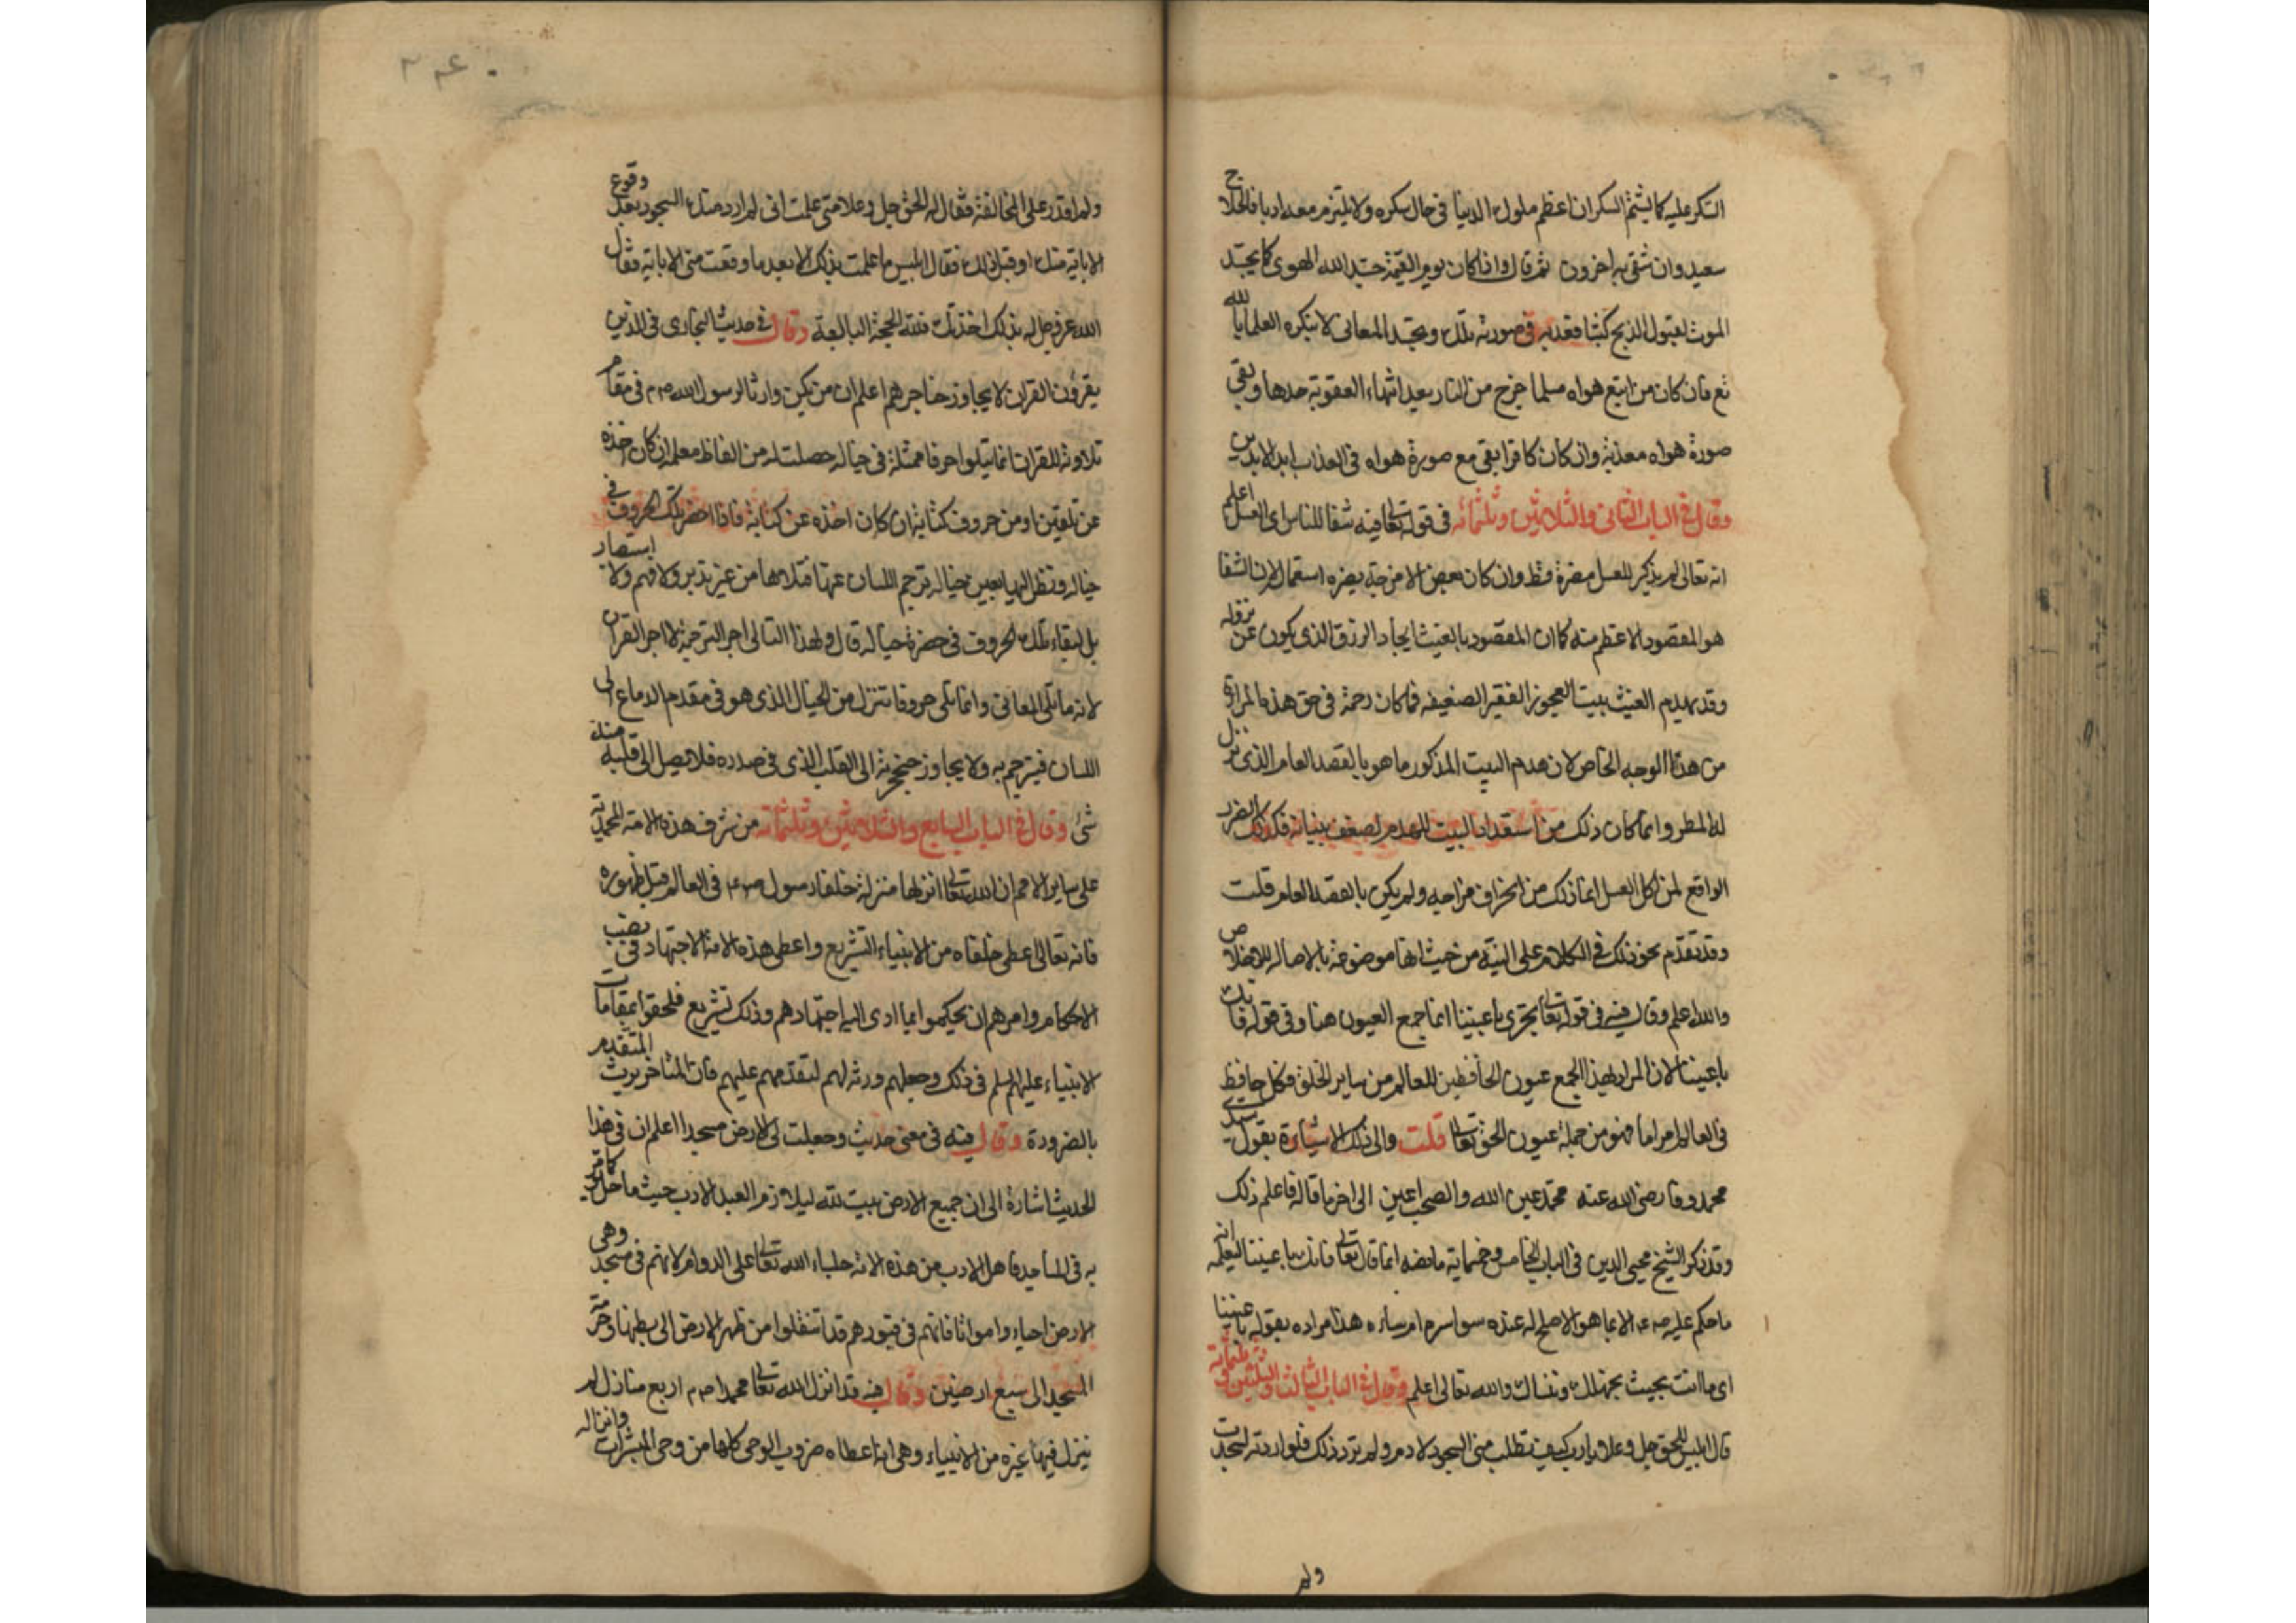 السكر عليه كما يشتم السكران اعظم ملوك الدنيا في حال سكره ولا يلتزم معه ادبا فالحلاج
سعيد وان شقى به اخرون ثم قال واذا كان يوم القيمة جسد الله الهوى كما يجسد
الموت لقبول الذبح كبشا فعذبه في صورته تلك وتجسد المعانى لا ينكره العلما بالله
تع فان كان من اتبع هواه مسلما خرج من النار بعد انتهاء العقوبة حدها وبقى
صورة هواه معذبة وان كان كافرا بقى مع صورة هواه فى العذاب ابد الابدين
وقال فى الباب الثانى والثلاثين وثلثمائه فى قوله تعالى فيه شفا للناس اى العسل اعلم
انه تعالى لم يذكر للعسل مضرة قط وان كان بعض الامزجة يضره استعماله لان الشفا
هو المقصود الاعظم منه كما ان المقصود بالغيث ايجاد الرزق الذى يكون عن نزوله
وقد يهدم الغيث بيت العجوز الفقير الضعيفه فما كان رحمة فى حق هذه المراة
من هذا الوجه الخاص لان هدم البيت المذكور ما هو بالقصد العام الذى نزل
له المطر وانما كان ذلك من استعداد البيت للهدم لضعف بنيانه فكذلك الضرر
الواقع لمن اكل العسل انما ذلك من انحراف مزاجه ولم يكن بالقصد العام قلت
وقد تقدم نحو ذلك فى الكلام على النية من حيث انها موضوعة بالاصاله للاخلاص
والله اعلم وقال فيه فى قوله تعالى تجرى باعيننا انما جمع العيون هنا وفى قوله فانك
باعيننا لان المراد بهذا الجمع عيون الحافظين للعالم من ساير الخلق فكل حافظ
فى العالم امراما فهو من جملة عيون الحق تعالى قلت والى ذلك الاشارة بقول سيدى
محمد وفا رضى الله عنه محمد عين الله والصحب اعين الى اخر ما قاله فاعلم ذلك
وقد ذكر الشيخ محيى الدين فى الباب الخامس وخمماية ما نصه انما قال تعالى فانك باعيننا ليعلمه انه
ما حكم عليه صـ عـ الا بما هو الاصلح له عنده سوا سره ام ساءه هذا مراده بقوله باعيننا
اى ما انت بحيث نجهلك وننساك والله تعالى اعلم وقال فى الباب الثالث والثلثين وثلثماية فى
قال ابليس للحق جل وعلا يارب كيف تطلب منى السجود لادم ولم ترد ذلك فلو اردته لسجدت
ولم
ولم اقدر على المخالفة فقال له الحق جل وعلا متى علمت انى لم ارد منك السجود بعد وقوع
الاباية منك او قبل ذلك فقال ابليس ما علمت بذلك الا بعد ما وقعت منى الاباية فقال
الله عز وجل له بذلك اخذتك فلله الحجة البالغة وقال فى حديث البخارى فى الذين
يقرؤن القران لا يجاوز حناجرهم اعلم ان من لم يكن وارثا لرسول الله صـ م فى مقام
تلاوته للقران انما يتلوا حرفا ممثلة فى خياله حصلت له من الفاظ معلمه ان كان اخذه
عن تلقين او من حروف كتابة ان كان اخذه عن كتابة فاذا احضر تلك الحروف فى
خياله ونظر اليها بعين خياله ترجم اللسان عنها فتلاها من غير تدبر ولا فهم ولا استبصار
بل لبقاء تلك الحروف فى حضرة خياله قال ولهذا التالى اجر الترجمة لا اجر القران
لانه ما تلى المعانى وانما تلى حروفا تنزل من الخيال الذى هو فى مقدم الدماغ الى
اللسان فيترجم به ولا يجاوز حنجرته الى القلب الذى فى صدره فلا يصل الى قلبه منه
شئ وقال فى الباب السابع والثلاثين وثلثمائه من شرف هذه الامه المحمدية
على ساير الامم ان الله تعالى انزلها منزلة خلفا رسول صـ عـ م فى العالم قبل ظهوره
فانه تعالى اعطى خلفاه من الانبياء التشريع واعطى هذه الامة الاجتهاد فى نصب
الاحكام وامرهم ان يحكموا بما ادى اليه اجتهادهم وذلك تشريع فلحقوا بمقامات
الانبياء عليهم السلم فى ذلك وجعلهم ورثه لهم لتقدمهم عليهم فان المتاخر يرث المتقدم
بالضرورة وقال فيه فى معنى حديث وجعلت لى الارض مسجدا اعلم ان فى هذا
الحديث اشارة الى ان جميع الارض بيت لله ليلازم العبد الادب حيث ما حل كما يؤمر
به فى المساجد فاهل الادب من هذه الامه جلساء الله تعالى على الدوام لانهم فى مسجد وهى
الارض احياء وامواتا فانهم فى قبورهم قد انتقلوا من ظهر الارض الى بطنها وحرمة
المسجد الى سبع ارضين وقال فيه قد انزل الله تعالى محمدا صـ م اربع منازل لم
ينزل فيها غيره من الانبياء وهى انه اعطاه ضروب الوحى كلها من وحى المبشرات وانزاله